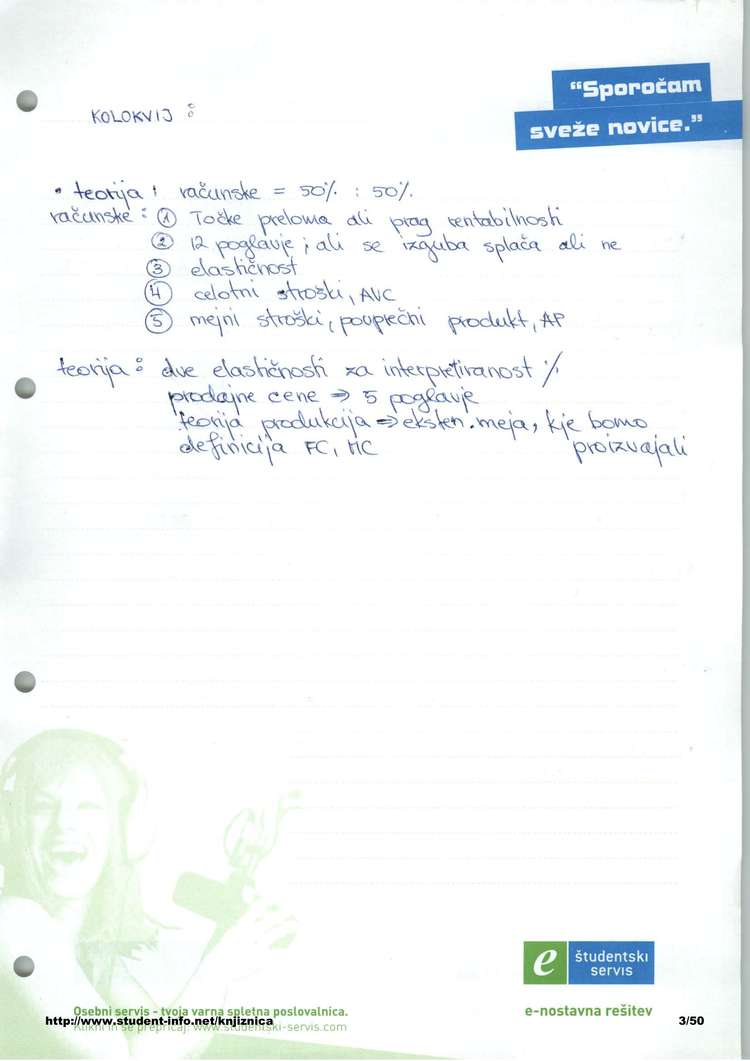 “Sporočam
sveže novice.”
KOLOKVIJ :
• teorija : računske = 50% : 50%.
računske : ① Točke preloma ali prag rentabilnosti
② 12 poglavje ; ali se izguba splača ali ne
③ elastičnost
④ celotni stroški, AVC
⑤ mejni stroški, povprečni produkt, AP
teorija : dve elastičnosti za interpretiranost %
prodajne cene ⇒ 5 poglavje
teorija produkcija ⇒ eksten. meja, kje bomo
definicija FC, MC proizvajali
e študentski
servis
Osebni servis - tvoja varna spletna poslovalnica.
e-nostavna rešitev
http://www.student-info.net/knjiznica
3/50
Klikni in se prepričaj: www.studentski-servis.com